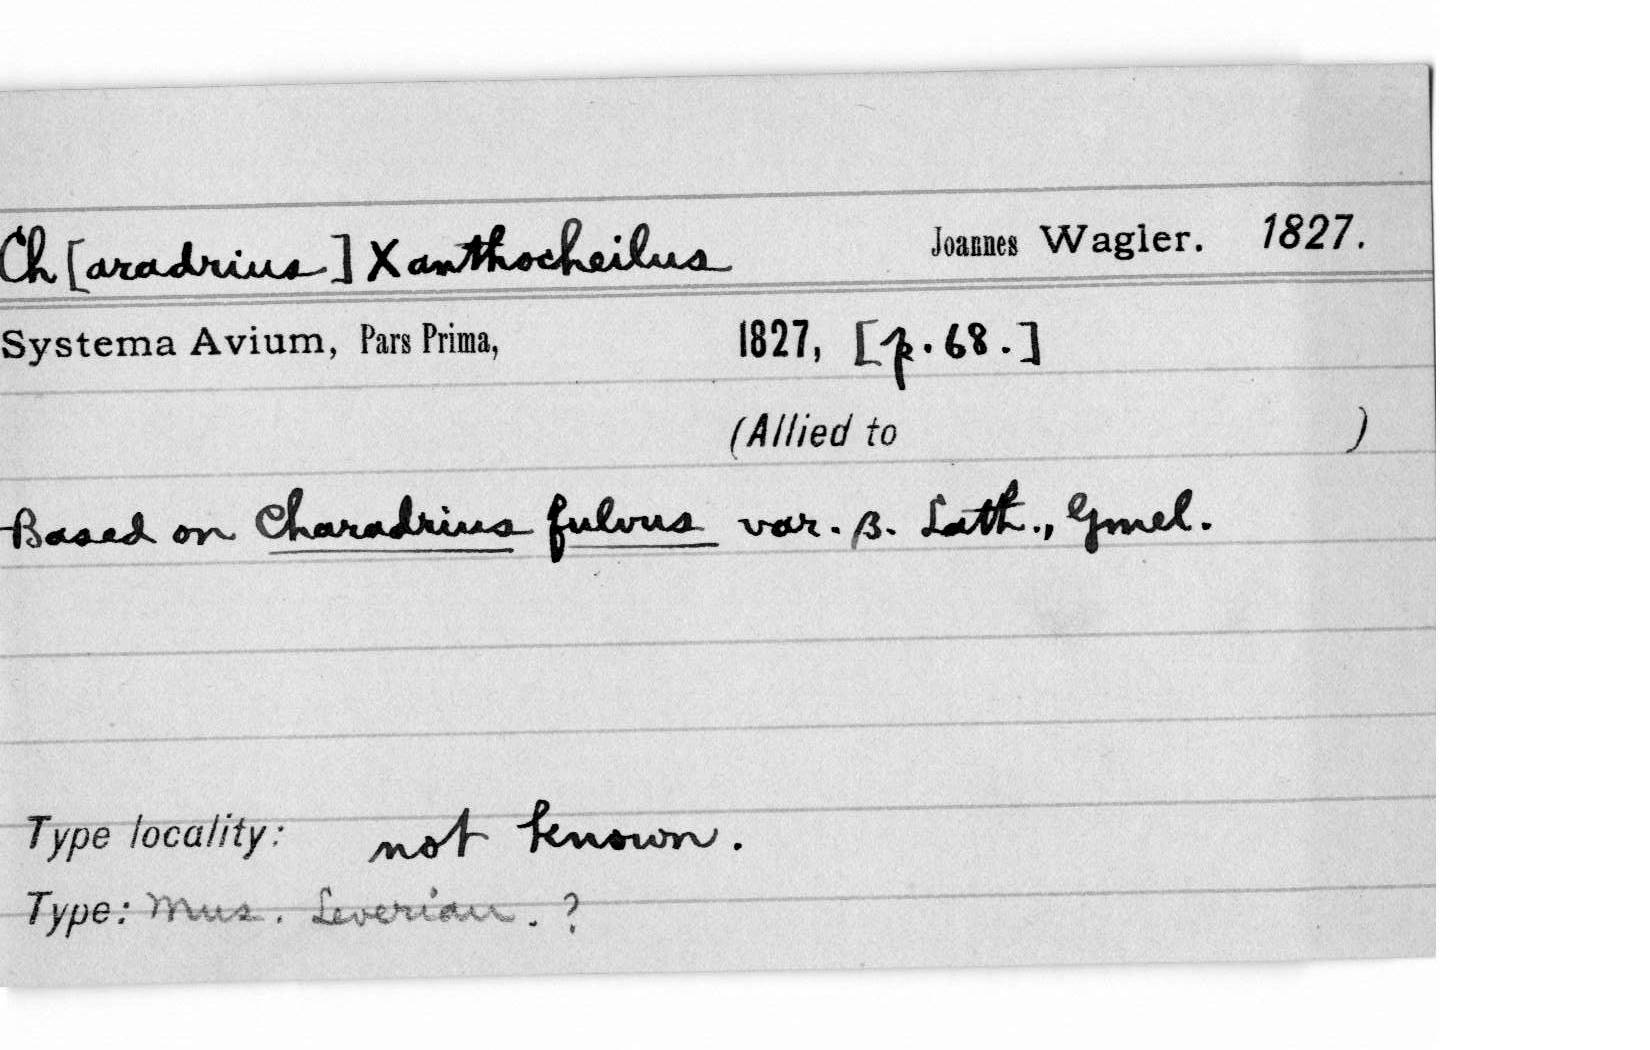 Ch[aradrius] Xanthocheilus Joannes Wagler. 1827.
Systema Avium, Pars Prima, 1827, [p. 68.]
(Allied to )
Based on Charadrius fulvus var. β. Lath., Gmel.
Type locality: not known.
Type: Mus. Leverian. ?